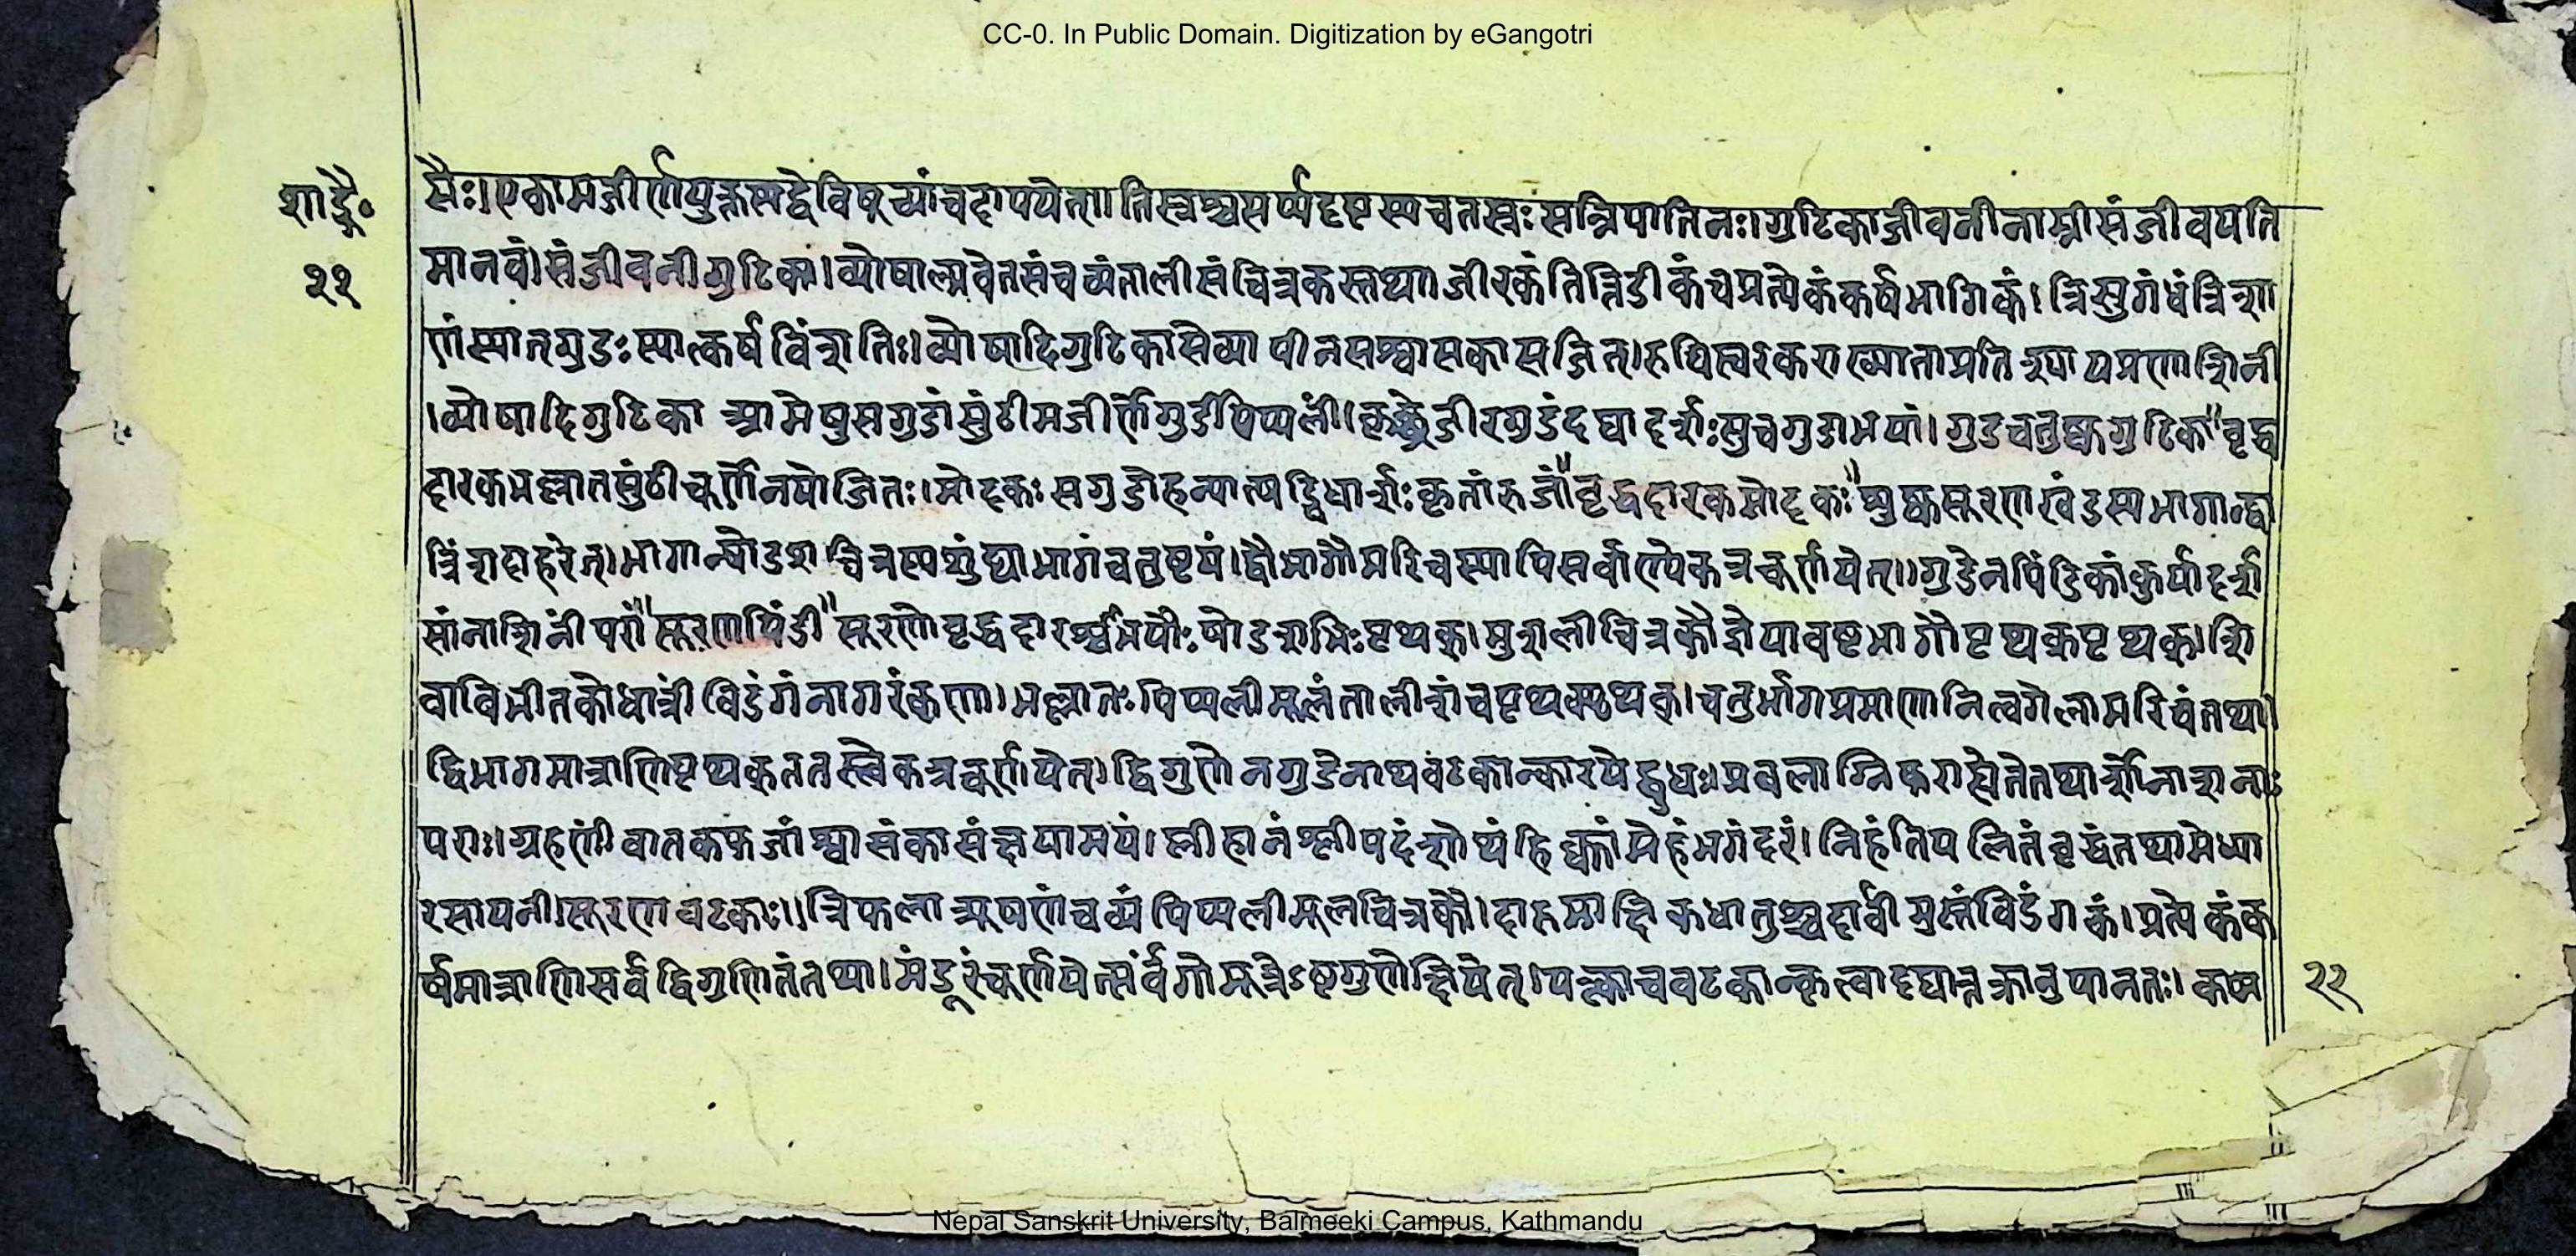 CC-0. In Public Domain. Digitization by eGangotri
शार्ङ्ग॰
२१
सैः। एकामजीर्णयुक्तस्यद्वेविषूच्यांचदापयेत्॥ तिस्रश्चसर्प्पदष्टस्यचतस्रः सन्निपातिनः। गुटिकाजीवनीनाम्नीसंजीवयति
मानवं। संजीवनीगुटिका। व्योषाल्मवेतसंचव्यंतालीसंचित्रकस्तथा। जीरकंतिन्तिडीकंचप्रत्येकंकर्षभागिकं। त्रिसुगंधंत्रिशा
णंस्यात्गुडः स्यात्कर्षविंशतिः। व्योषादिगुटिकासेव्या पीनसश्वासकासजित्। रुचिस्वरकराख्याताप्रतिश्यायप्रणाशिनी
। व्योषादिगुटिका आमेषुसगुडांसुंठीमजीर्णेगुडपिप्पलीं। कृच्छ्रेजीरगुडंदद्यादर्शःसुचगुडाभयां। गुडचतुष्कगुटिका" वृद्ध
दारकभल्लातसुंठीचूर्णेनयोजितः। मोदकः सगुडोहन्यात्षड्विधार्शः कृतांरुजां" वृद्धदारकमोदकः" शुष्कसूरणखंडस्यभागान्द्वा
त्रिंशदाहरेत्। भागान्षोडशचित्रस्यशुंठ्याभागंचतुष्टयं। द्वौभागौमरिचस्यापिसर्वाण्येकत्रचूर्णयेत्॥ गुडेनपिंडिकांकुर्यादर्श
सांनाशिनींपरां" सूरणपिंडी" सूरणोवृद्धदारश्चभागैः षोडशभिः पृथक्। मुशलीचित्रकौज्ञेयावष्टभागौपृथक्पृथक्। शि
वाविभीतकोधात्रीविडंगंनागरंकणा। भल्लातः पिप्पलीमूलंतालीशंचपृथक्पृथक्। चतुर्भागप्रमाणानित्वगेलामरिचंतथा।
द्विभागमात्राणिपृथक्ततस्त्वेकत्रचूर्णयेत्। द्विगुणेनगुडेनाथवटकान्कारयेद्बुधः। प्रबलाग्निकरास्तेतेतथार्शोनाशनाः
पराः। ग्रहणींवातकफजांश्वासंकासंक्षयामयं। प्लीहानंश्लीपदंशोथंहिक्कांमेहंभगंदरं। निहंतिपलितंवृद्धंतथामेध्या
रसायनी। सूरणवटकाः॥ त्रिफलात्र्यूषणंचव्यंपिप्पलीमूलचित्रकौ। दारुमाक्षिकधातुश्चदार्वीमुस्तंविडंगकं। प्रत्येकंक
र्षमात्राणिसर्वद्विगुणितंतथा। मंडूरंचूर्णयेत्सर्वंगोमूत्रेऽष्टगुणेक्षिपेत्। पक्त्वाचवटकान्कृत्वादद्यात्तक्रानुपानतः।
२१
Nepal Sanskrit University, Balmeeki Campus, Kathmandu